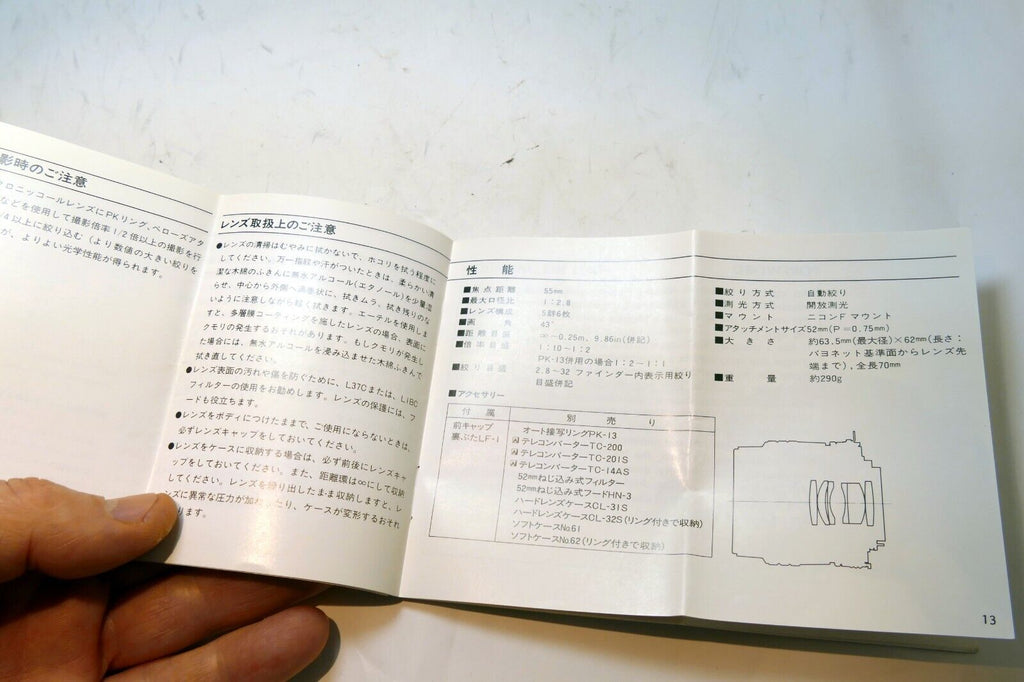 影時のご注意
ロニッコールレンズにPKリング、ベローズアタ
などを使用して撮影倍率1/2倍以上の撮影を行
/4以上に絞り込む(より数値の大きい絞りを
が、よりよい光学性能が得られます。
レンズ取扱上のご注意
●レンズの清掃はむやみに拭かないで、ホコリを払う程度に
してください。万一指紋や汗がついたときは、柔らかい清
潔な木綿のふきんに無水アルコール(エタノール)を少量湿
らせ、中心から外側へ渦巻状に、拭きムラ、拭き残りのな
いように注意しながら軽く拭きます。エーテルを使用しま
すと、多層膜コーティングを施したレンズの場合、表面に
クモリの発生するおそれがあります。もしクモリが発生し
た場合には、無水アルコールを浸み込ませた木綿ふきんで
拭き直してください。
●レンズ表面の汚れや傷を防ぐために、L37Cまたは、L1BC
フィルターの使用をお勧めします。レンズの保護には、フ
ードも役立ちます。
●レンズをボディにつけたままで、ご使用にならないときは、
必ずレンズキャップをしておいてください。
●レンズをケースに収納する場合は、必ず前後にレンズキャ
ップをしておいてください。また、距離環は∞にして収納
してください。レンズを繰り出したまま収納しますと、レ
ンズに異常な圧力が加わったり、ケースが変形するおそれ
ります。
性 能
■焦点距離 55mm
■最大口径比 1:2.8
■レンズ構成 5群6枚
■画 角 43°
■距離目盛 ∞~0.25m、9.86in(併記)
■倍率目盛 1:10~1:2
PK-13併用の場合1:2~1:1
■絞り目盛 2.8~32 ファインダー内表示用絞り
目盛併記
■アクセサリー
付 属 別 売 り
前キャップ
裏ぶたLF-1
オート接写リングPK-13
テレコンバーターTC-200
テレコンバーターTC-201S
テレコンバーターTC-14AS
52mmねじ込み式フィルター
52mmねじ込み式フードHN-3
ハードレンズケースCL-31S
ハードレンズケースCL-32S(リング付きで収納)
ソフトケースNo.61
ソフトケースNo.62(リング付きで収納)
■絞り方式 自動絞り
■測光方式 開放測光
■マウント ニコンFマウント
■アタッチメントサイズ 52mm(P=0.75mm)
■大 き さ 約63.5mm(最大径)×62mm(長さ:
バヨネット基準面からレンズ先
端まで)、全長70mm
■重 量 約290g
13